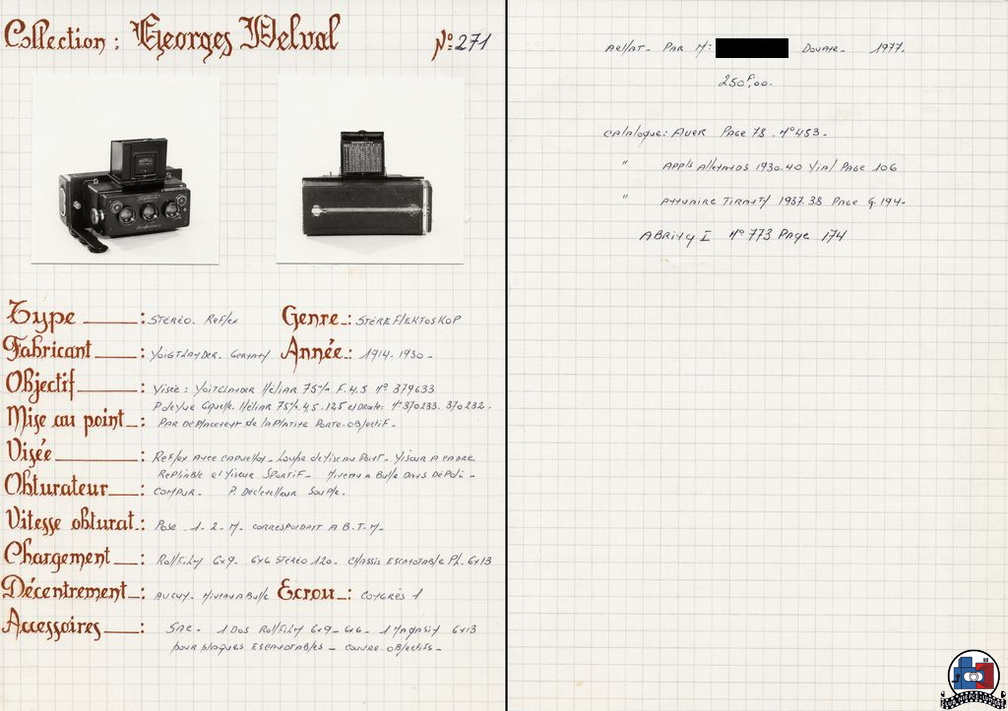 Collection: Georges Delval N°: 271
Type : Stéréo. Reflex Genre : STEREFLEKTOSKOP
Fabricant : Voigtlander. Germany Année : 1914. 1930 -
Objectif : Visée : Voitclander Héliar 75m/m F. 4,5 N° 379633
Héliar 75m/m 4,5. 125 et Droite: N° 370233. 370232.
Mise au point : Par Déplacement de la Platine Porte-Objectif.
Visée : Reflex avec capuchon - Loupe de mise au Point - Viseur A cadre
Repliable et Viseur Sportif - Niveau à Bulle dans Dépoli -
Obturateur : Compur. P. Declencheur Souple.
Vitesse obturat : Pose 1. 2. M. correspondant A B. T. M.
Chargement : Roll Film 6x9. 6x6 Stéréo 120. Chassis Escamotable Pl. 6x13
Décentrement : Aucun. Niveau à Bulle Ecrou : Congrès 1
Accessoires : SAC - 1 Dos Roll Film 6x9-6x6 - 1 Magasin 6x13
pour plaques Escamotables - couvre objectifs -
Achat - Par M: Douane - 1977.
250F,00.
Catalogue: Auer Page 78 . N° 453.
" App/s Allemands 1930.40 Vial Page 106
" Annuaire Tiranty 1937.38 Page G.194.
Abring I N° 773 Page 174